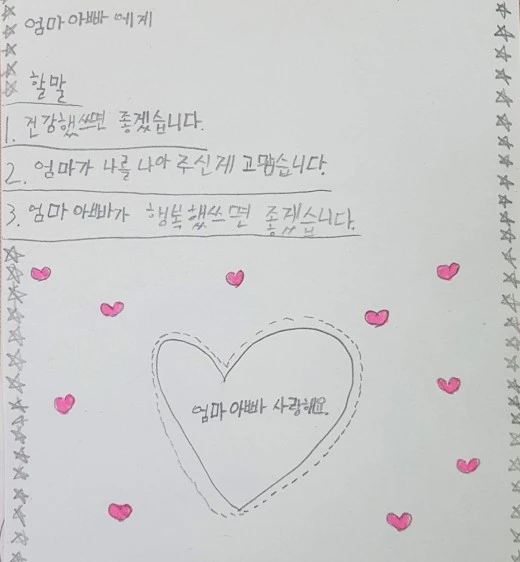 엄마 아빠 에게
할말
1. 건강했쓰면 좋겠습니다.
2. 엄마가 나를 나아 주신게 고맙습니다.
3. 엄마 아빠가 행복했쓰면 좋겠습니다.
엄마 아빠 사랑해요.